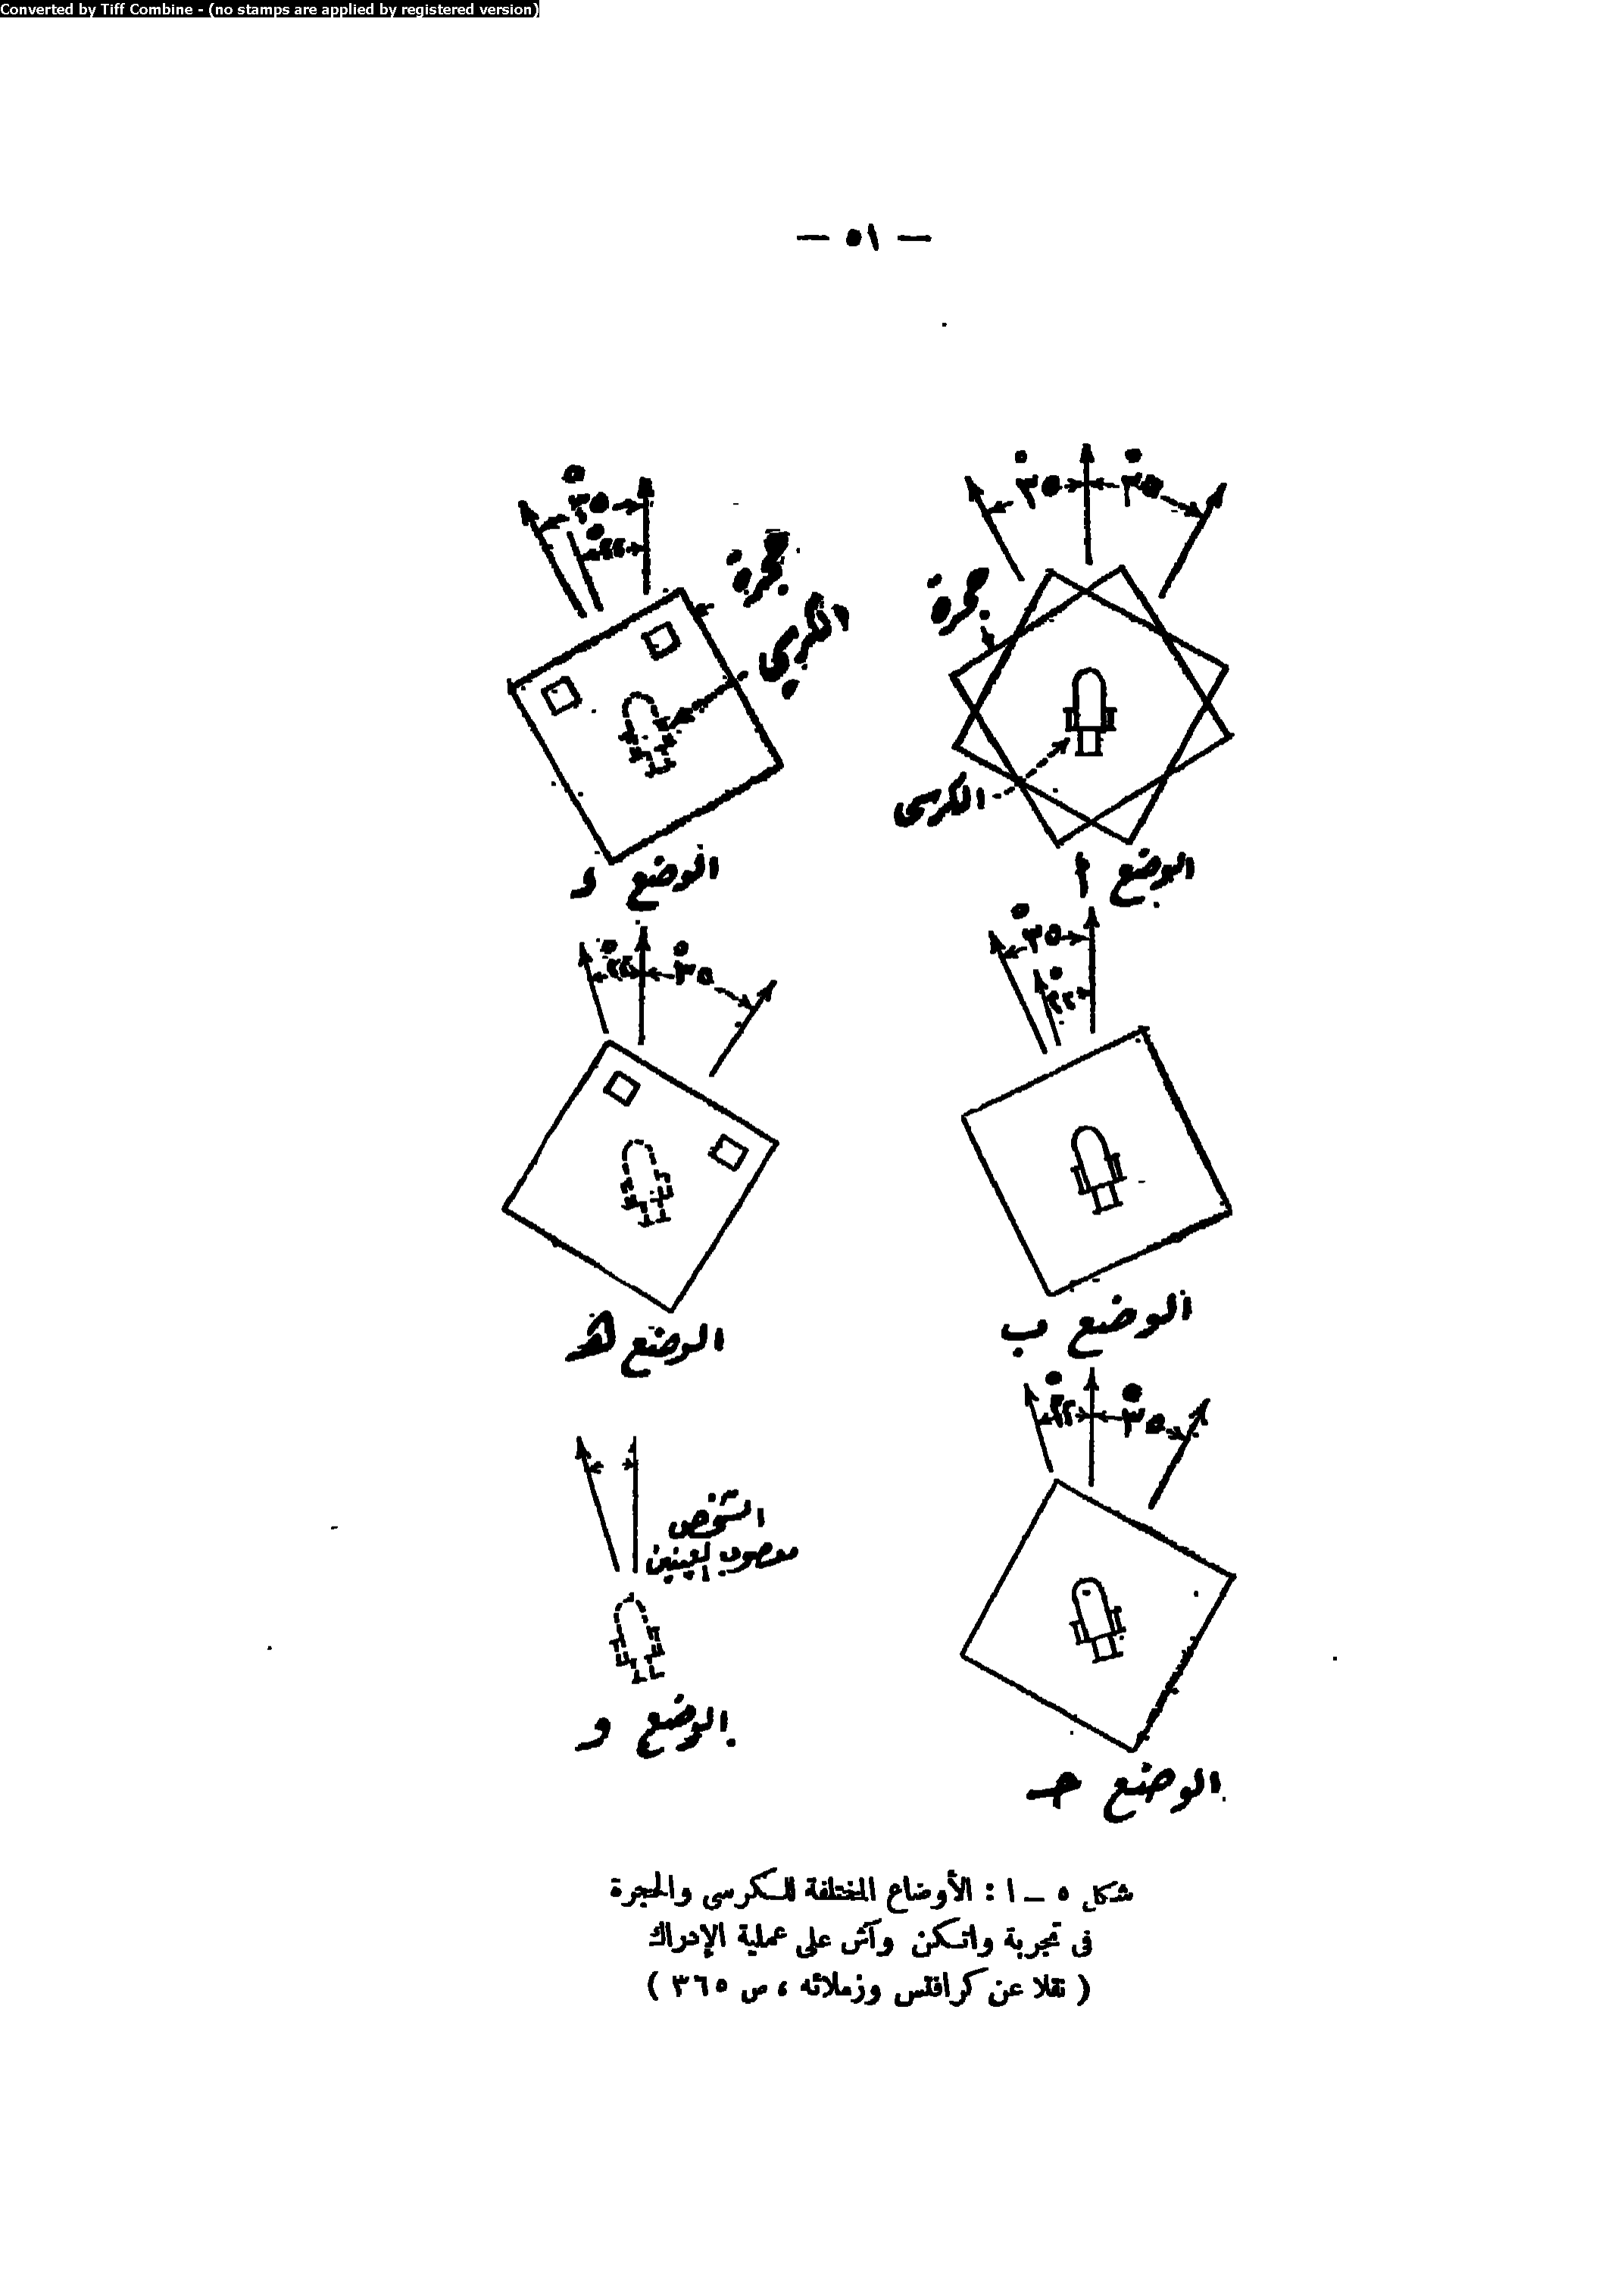 Converted by Tiff Combine - (no stamps are applied by registered version)
— ٥١ —
٣٥° ٣٥°
حجرة
الكرسى
الوضع أ
٣٥°
٢٢°
حجرة
الكرسى
الوضع د
٣٥°
٢٢°
الوضع ب
٢٢° ٣٥°
الوضع ه
٢٢° ٣٥°
الوضع حـ
الشخص
معصوب العينين
الوضع و
شكل ٥ – ١ : الأوضاع المختلفة للكرسى والحجرة
فى تجربة واتكن وآش على عملية الإدراك
( نقلا عن كرافتس وزملائه ، ص ٣٦٥ )